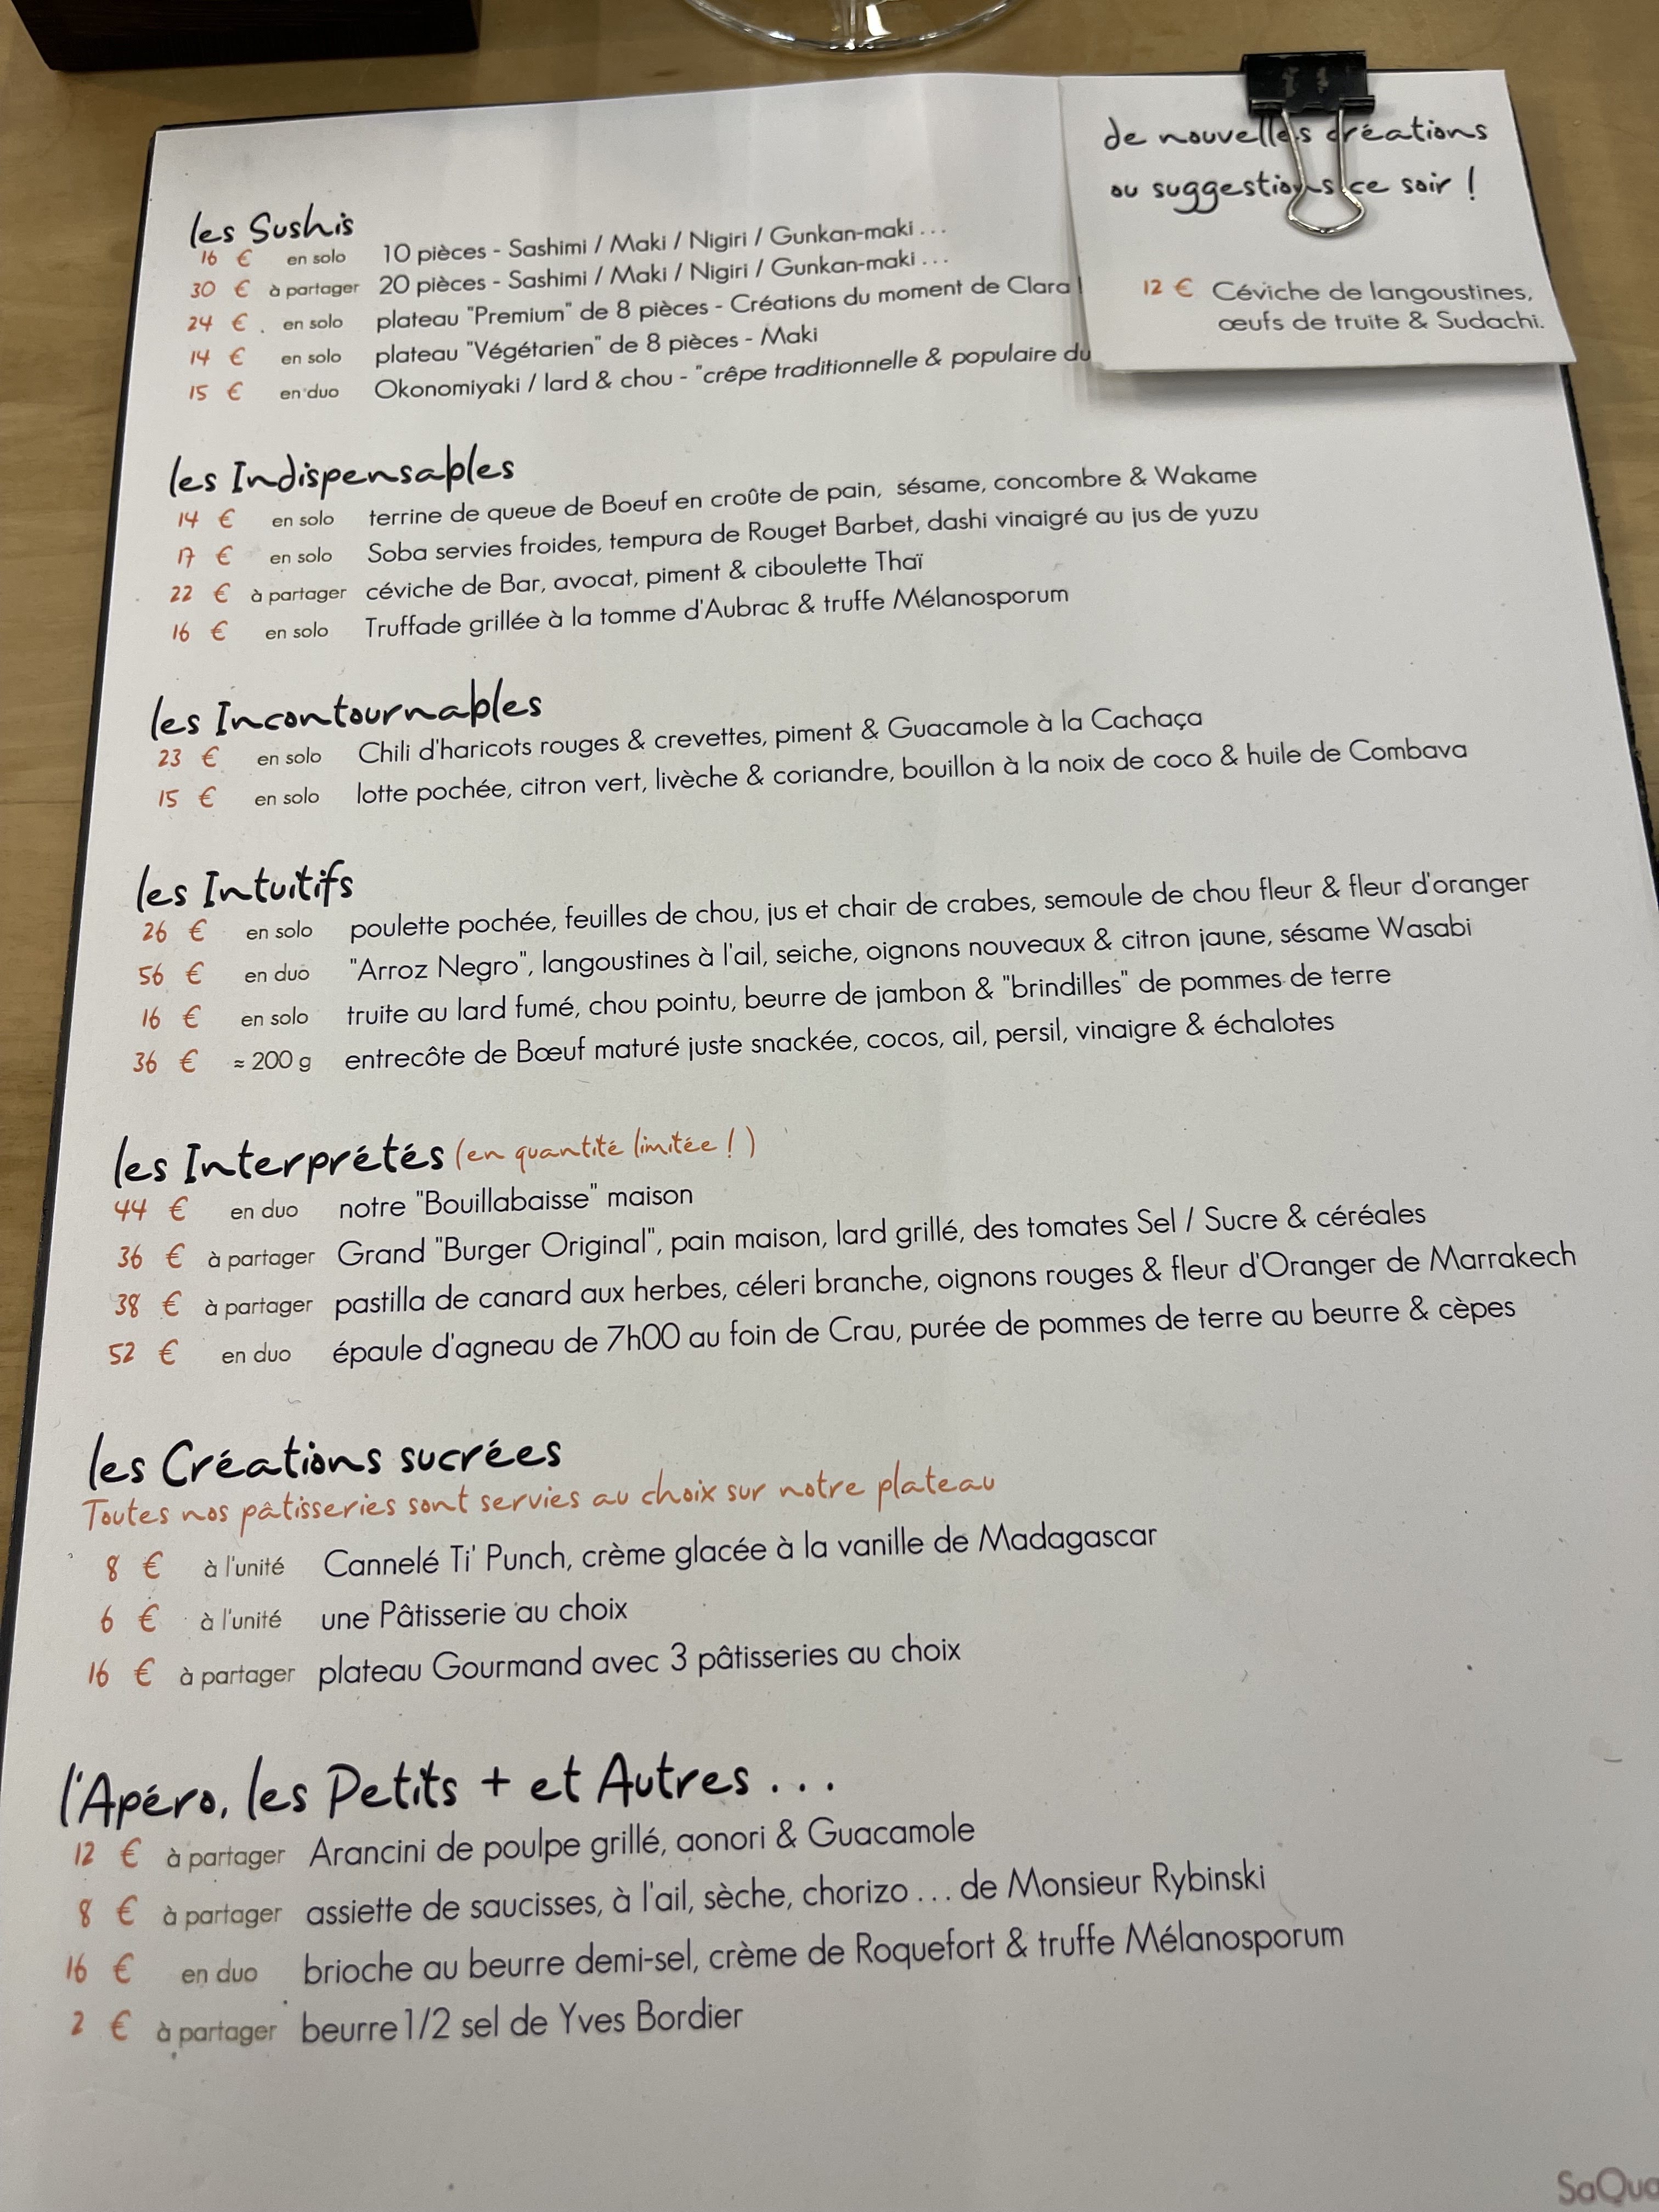 de nouvelles créations
ou suggestions ce soir !
12 € Céviche de langoustines,
œufs de truite & Sudachi.
les Sushis
16 € en solo 10 pièces - Sashimi / Maki / Nigiri / Gunkan-maki ...
30 € à partager 20 pièces - Sashimi / Maki / Nigiri / Gunkan-maki ...
24 € en solo plateau "Premium" de 8 pièces - Créations du moment de Clara !
14 € en solo plateau "Végétarien" de 8 pièces - Maki
15 € en duo Okonomiyaki / lard & chou - "crêpe traditionnelle & populaire du
les Indispensables
14 € en solo terrine de queue de Boeuf en croûte de pain, sésame, concombre & Wakame
17 € en solo Soba servies froides, tempura de Rouget Barbet, dashi vinaigré au jus de yuzu
22 € à partager céviche de Bar, avocat, piment & ciboulette Thaï
16 € en solo Truffade grillée à la tomme d'Aubrac & truffe Mélanosporum
les Incontournables
23 € en solo Chili d'haricots rouges & crevettes, piment & Guacamole à la Cachaça
15 € en solo lotte pochée, citron vert, livèche & coriandre, bouillon à la noix de coco & huile de Combava
les Intuitifs
26 € en solo poulette pochée, feuilles de chou, jus et chair de crabes, semoule de chou fleur & fleur d'oranger
56 € en duo "Arroz Negro", langoustines à l'ail, seiche, oignons nouveaux & citron jaune, sésame Wasabi
16 € en solo truite au lard fumé, chou pointu, beurre de jambon & "brindilles" de pommes de terre
36 € ≈ 200 g entrecôte de Bœuf maturé juste snackée, cocos, ail, persil, vinaigre & échalotes
les Interprétés (en quantité limitée ! )
44 € en duo notre "Bouillabaisse" maison
36 € à partager Grand "Burger Original", pain maison, lard grillé, des tomates Sel / Sucre & céréales
38 € à partager pastilla de canard aux herbes, céleri branche, oignons rouges & fleur d'Oranger de Marrakech
52 € en duo épaule d'agneau de 7h00 au foin de Crau, purée de pommes de terre au beurre & cèpes
les Créations sucrées
Toutes nos pâtisseries sont servies au choix sur notre plateau
8 € à l'unité Cannelé Ti' Punch, crème glacée à la vanille de Madagascar
6 € à l'unité une Pâtisserie au choix
16 € à partager plateau Gourmand avec 3 pâtisseries au choix
l'Apéro, les Petits + et Autres ...
12 € à partager Arancini de poulpe grillé, aonori & Guacamole
8 € à partager assiette de saucisses, à l'ail, sèche, chorizo ... de Monsieur Rybinski
16 € en duo brioche au beurre demi-sel, crème de Roquefort & truffe Mélanosporum
2 € à partager beurre 1/2 sel de Yves Bordier